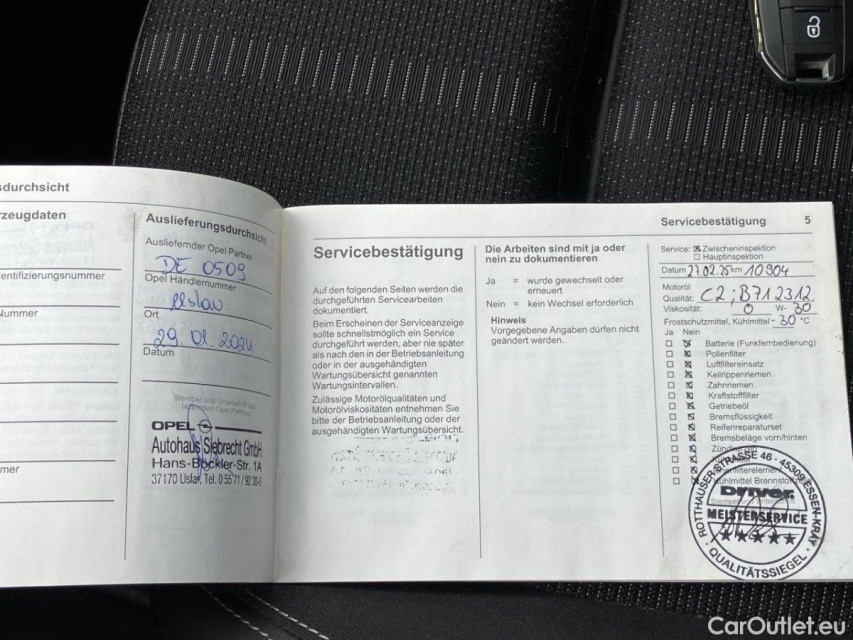 sdurchsicht
zeugdaten
entifizierungsnummer
ummer
mer
Auslieferungsdurchsicht
Ausliefernder Opel Partner
DE 0509
Opel Händlernummer
Uslar
Ort
29.01.2024
Datum
Stempel und Unterschrift des
OPEL
Autohaus Siebrecht GmbH
Hans-Böckler-Str. 1A
37170 Uslar, Tel. 0 55 71 / 92 30-0
Servicebestätigung
Auf den folgenden Seiten werden die
durchgeführten Servicearbeiten
dokumentiert.
Beim Erscheinen der Serviceanzeige
sollte schnellstmöglich ein Service
durchgeführt werden, aber nie später
als nach den in der Betriebsanleitung
oder in der ausgehändigten
Wartungsübersicht genannten
Wartungsintervallen.
Zulässige Motorölqualitäten und
Motorölviskositäten entnehmen Sie
bitte der Betriebsanleitung oder der
ausgehändigten Wartungsübersicht.
Die Arbeiten sind mit ja oder
nein zu dokumentieren
Ja = wurde gewechselt oder
erneuert
Nein = kein Wechsel erforderlich
Hinweis
Vorgegebene Angaben dürfen nicht
geändert werden.
Servicebestätigung 5
Service: Zwischeninspektion
Hauptinspektion
Datum 27.02.25 km 10904
Motoröl
Qualität: C2; B712312
Viskosität: 0 W- 30
Frostschutzmittel, Kühlmittel -30 °C
Ja Nein
Batterie (Funkfernbedienung)
Pollenfilter
Luftfiltereinsatz
Keilrippenriemen
Zahnriemen
Kraftstofffilter
Getriebeöl
Bremsflüssigkeit
Reifenreparaturset
Bremsbeläge vorn/hinten
Kühlmittel Brennstoff
ROTTHAUSER STRASSE 46 · 45309 ESSEN-KRAY
Driver
MEISTERSERVICE
QUALITÄTSSIEGEL
CarOutlet.eu